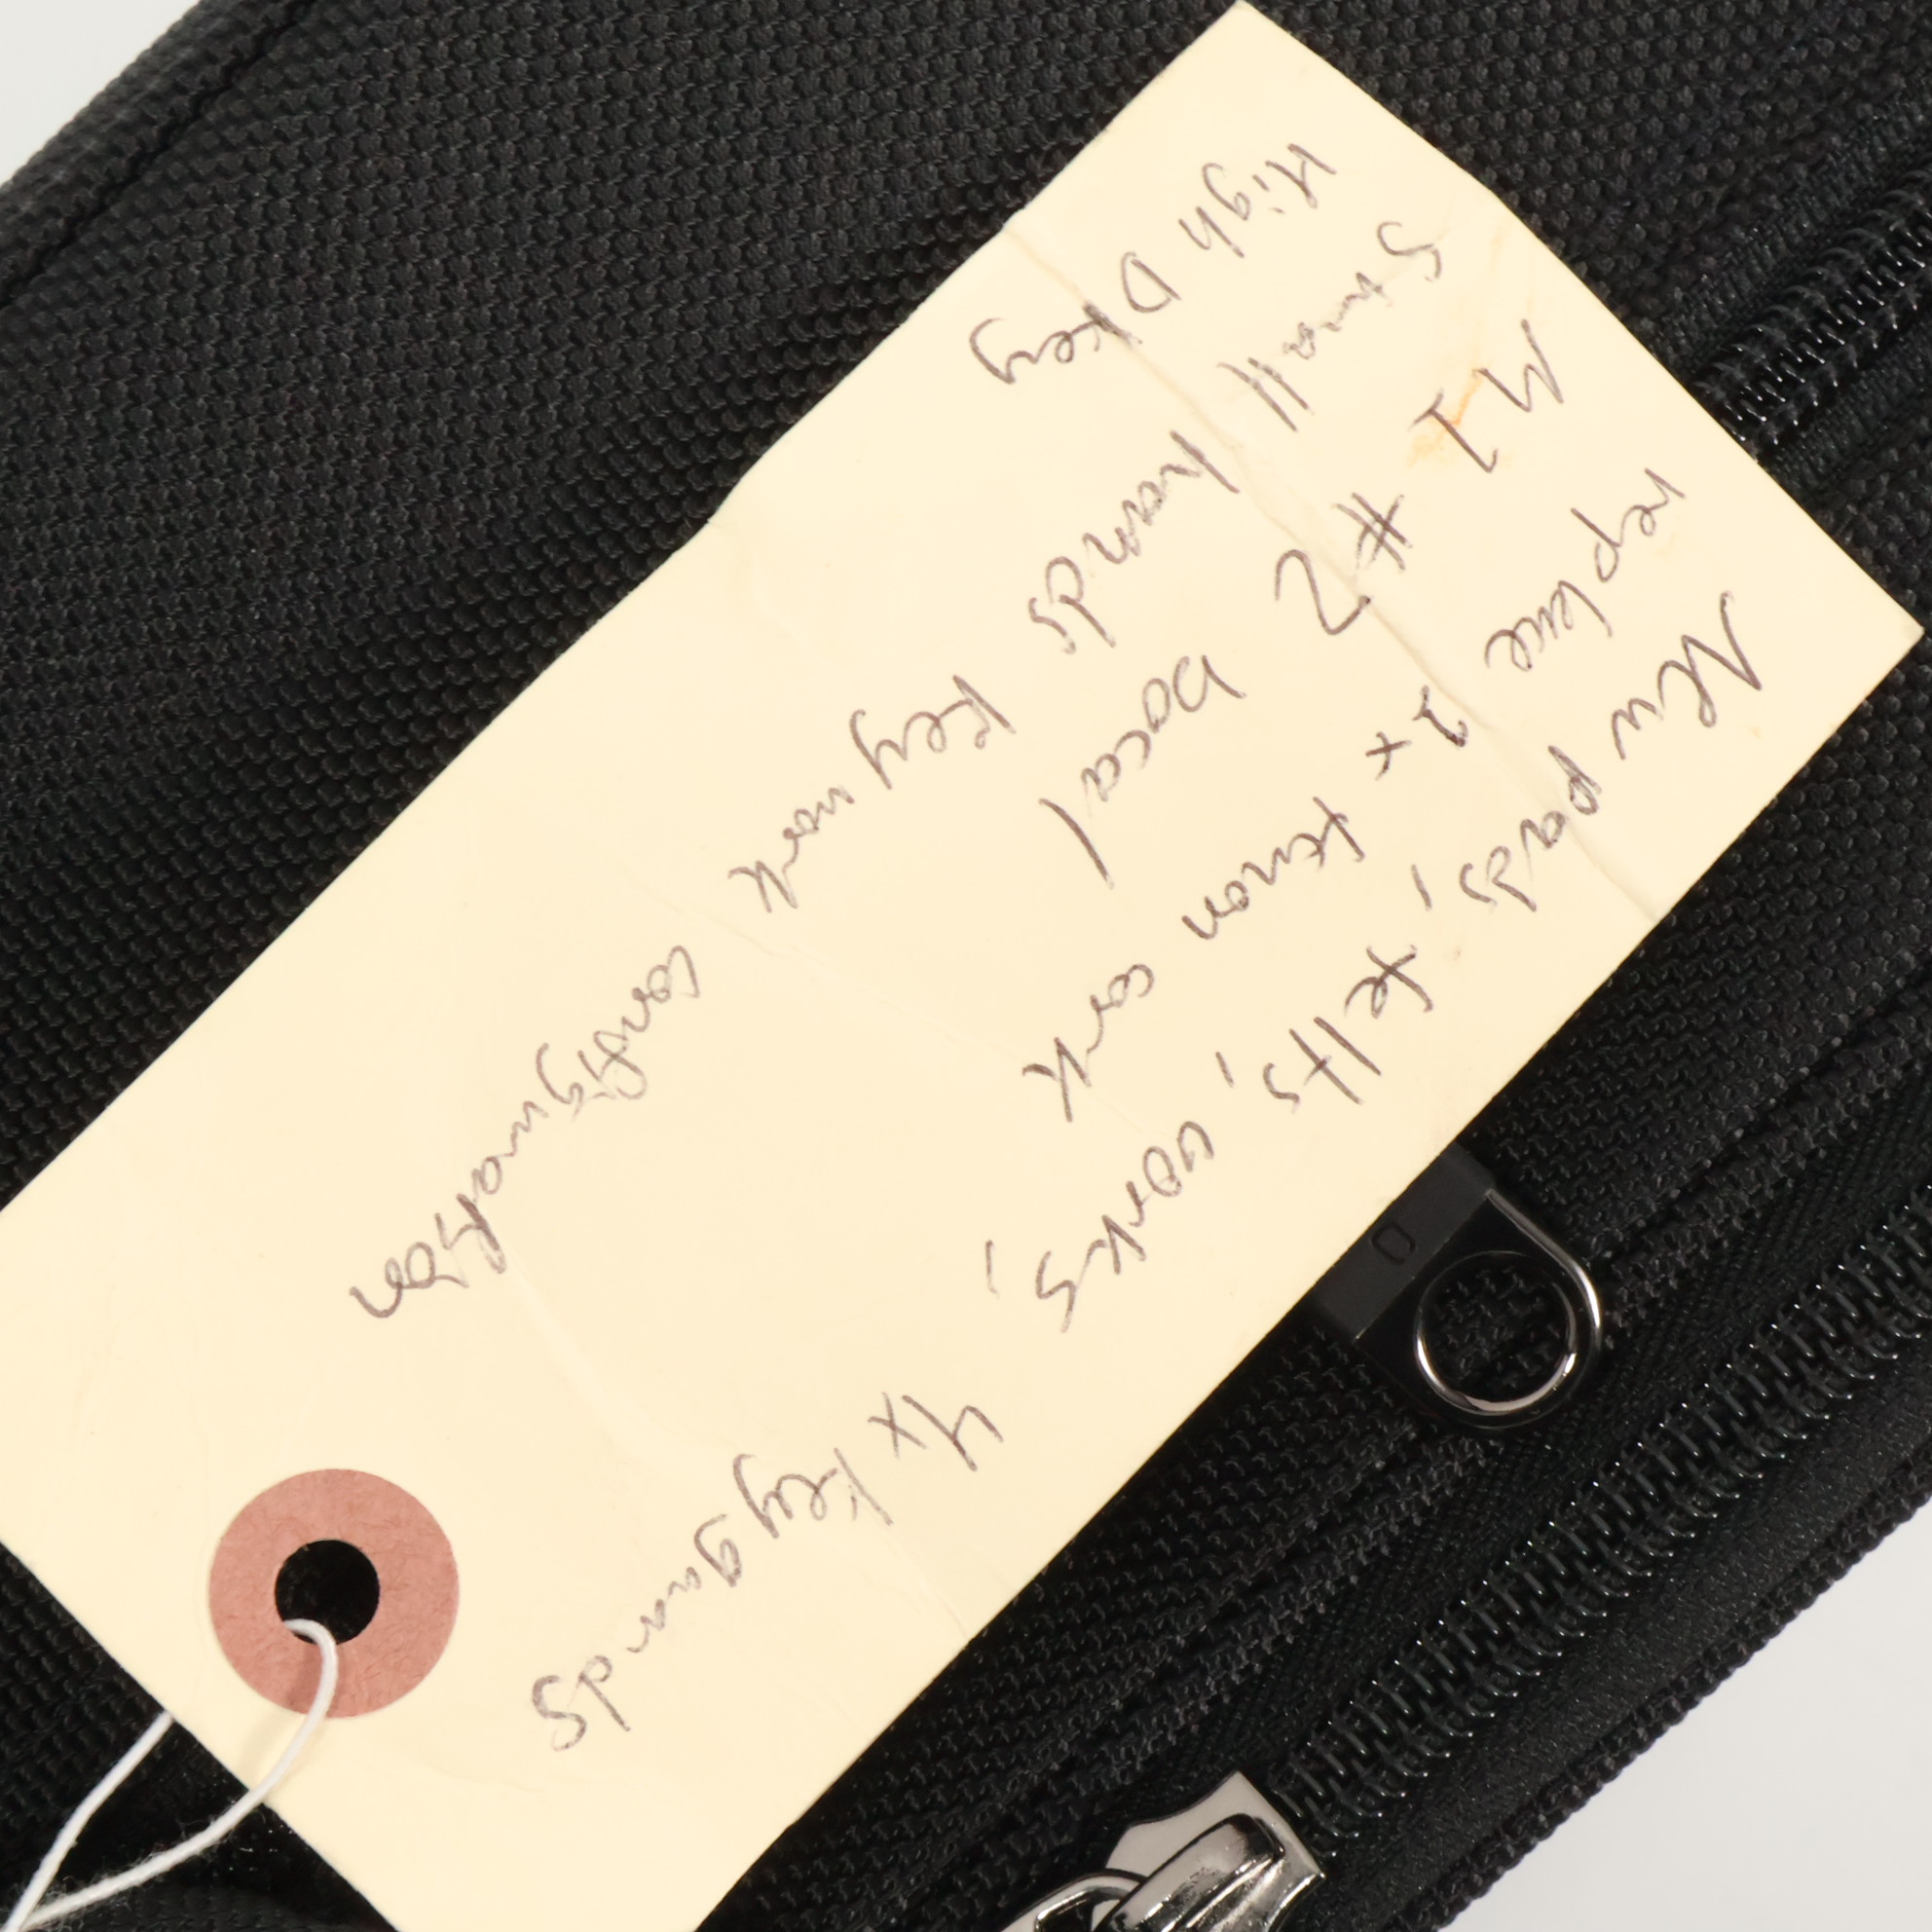 New pads, felts, corks, 4x keyguards
replace 1x tenon cork
M1 #2 bocal
Small hands keywork configuration
High D key